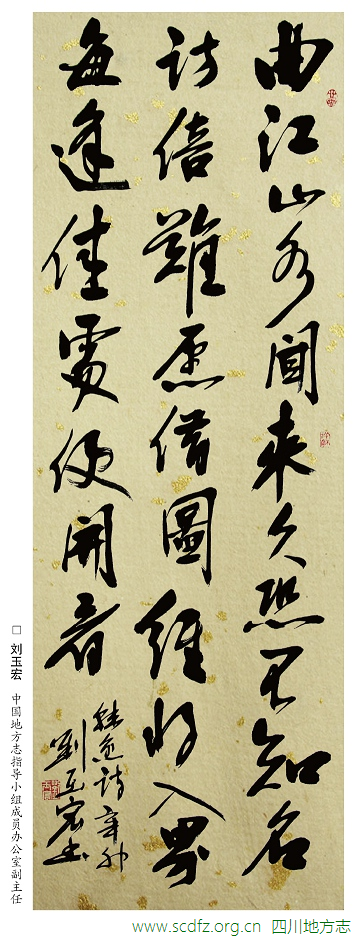 曲江山水聞來久恐不知名
訪倍難愿借圖經将入界
每逢佳處便開看
韓愈詩辛卯
劉玉宏書
□ 刘玉宏 中国地方志指导小组成员办公室副主任
www.scdfz.org.cn 四川地方志